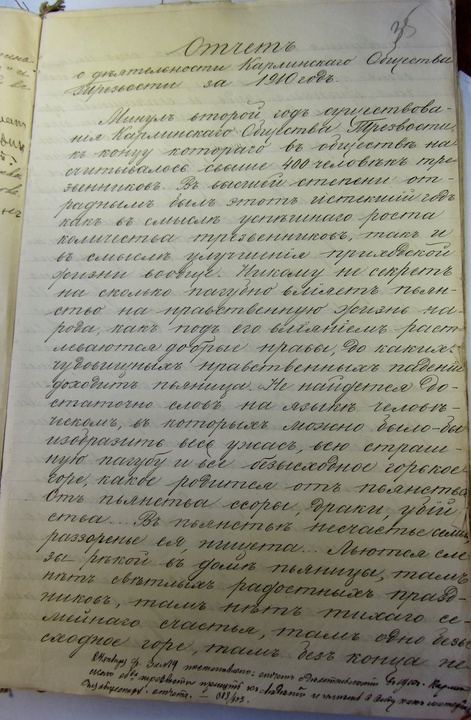 Отчетъ
о дѣятельности Карлинскаго Общества
Трезвости за 1910 годъ.
Минулъ второй годъ существова-
нія Карлинскаго Общества Трезвости,
къ концу котораго въ обществѣ на-
считывалось свыше 400 человѣкъ тре-
звенниковъ. Въ высшей степени от-
раднымъ былъ этотъ истекшій годъ
какъ въ смыслѣ успѣшнаго роста
количества трезвенниковъ, такъ и
въ смыслѣ улучшенія приходской
жизни вообще. Никому не секретъ
на сколько пагубно вліяетъ пьян-
ство на нравственную жизнь на-
рода, какъ подъ его вліяніемъ раст-
лѣваются добрые нравы, до какихъ
чудовищныхъ нравственныхъ паденій
доходитъ пьяница. Не найдется до-
статочно словъ на языкѣ человѣ-
ческомъ, въ которыхъ можно было-бы
изобразить весь ужасъ, всю страш-
ную пагубу и все безысходное горькое
горе, какое родится отъ пьянства.
Отъ пьянства ссоры, драки, убій
ства... Въ пьянствѣ несчастье семьи,
раззоренье ея, нищета... Льются сле
зы рѣкой въ домѣ пьяницы, тамъ
нѣтъ свѣтлыхъ радостныхъ празд-
никовъ, тамъ нѣтъ тихаго се-
мейнаго счастья, тамъ одно безы
сходное горе, тамъ безъ конца не
отчетъ
трезвости къ и
отчетъ.